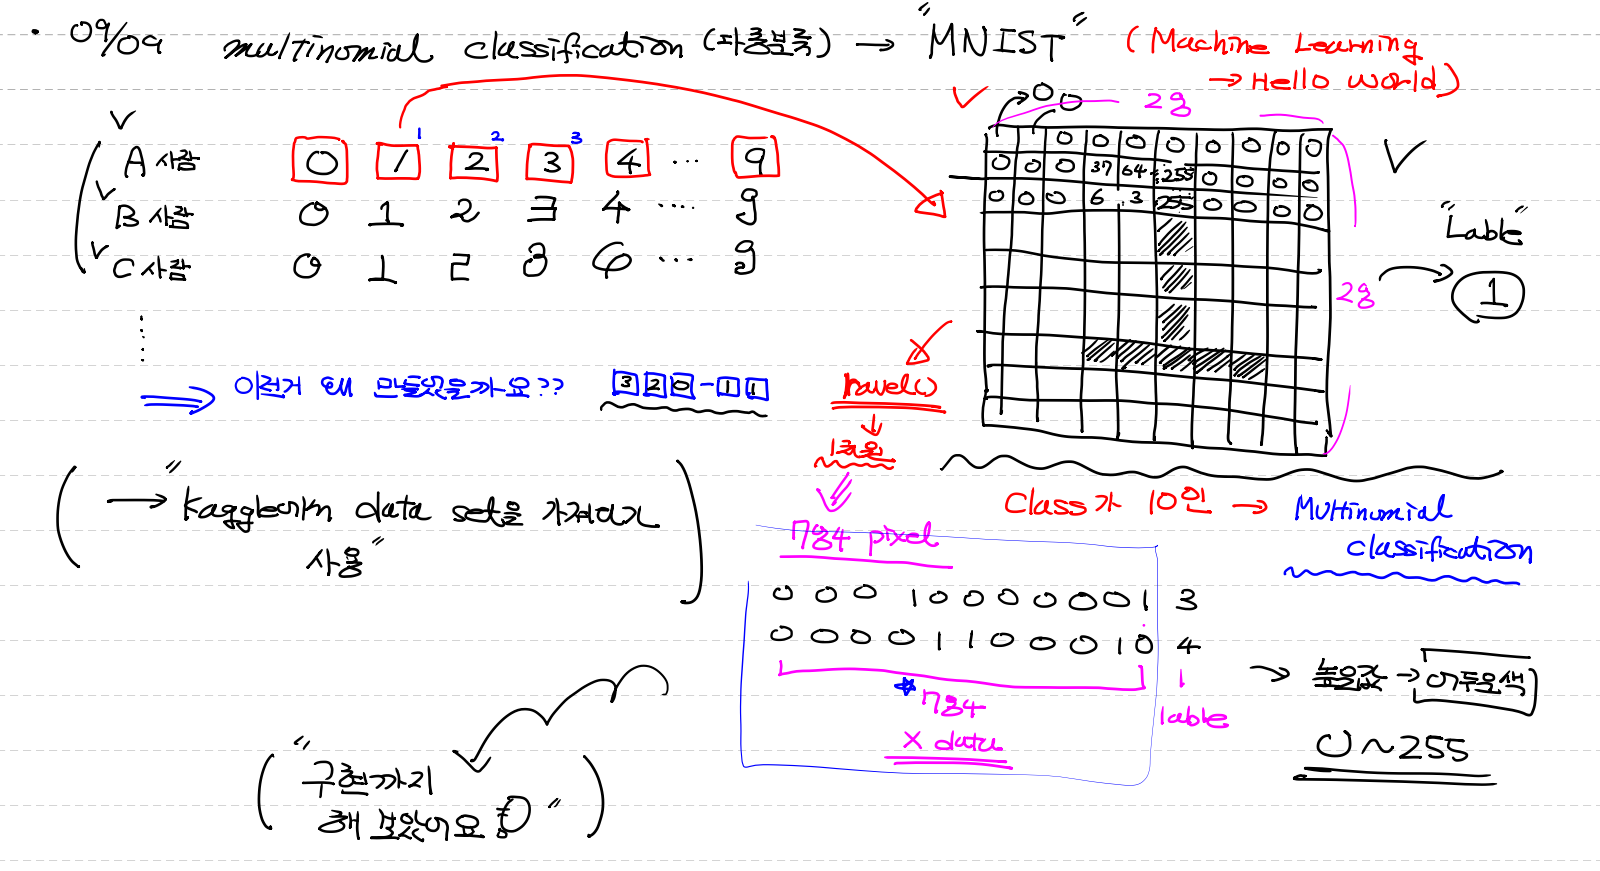 · 09/09 multinomial classification (다중분류) → "MNIST" (Machine Learning
→ Hello World)
A 사람 0 1 2 3 4 ... 9
1 2 3
B 사람 0 1 2 3 4 .... 9
C 사람 0 1 2 3 6 ... 9
0 0
28
0 0 0 0 0 0 0 0
0 0 0 37 64 255 0 0 0 0
0 0 0 6 3 255 0 0 0 0
28
"Lable"
1
⇒ 이런거 왜 만들었을까요?? 3 2 0 - 1 1
ravel()
↓
1차원
784 pixel
Class가 10인 → Multinomial
classification
( → "Kaggle에서 data set을 가져다가
사용" )
0 0 0 1 0 0 0 0 0 0 1 3
0 0 0 0 1 1 0 0 0 1 0 4
784
X data
lable
→ 높을값 → 어두운색
0 ~ 255
( "구현까지
해 보았어요 " )